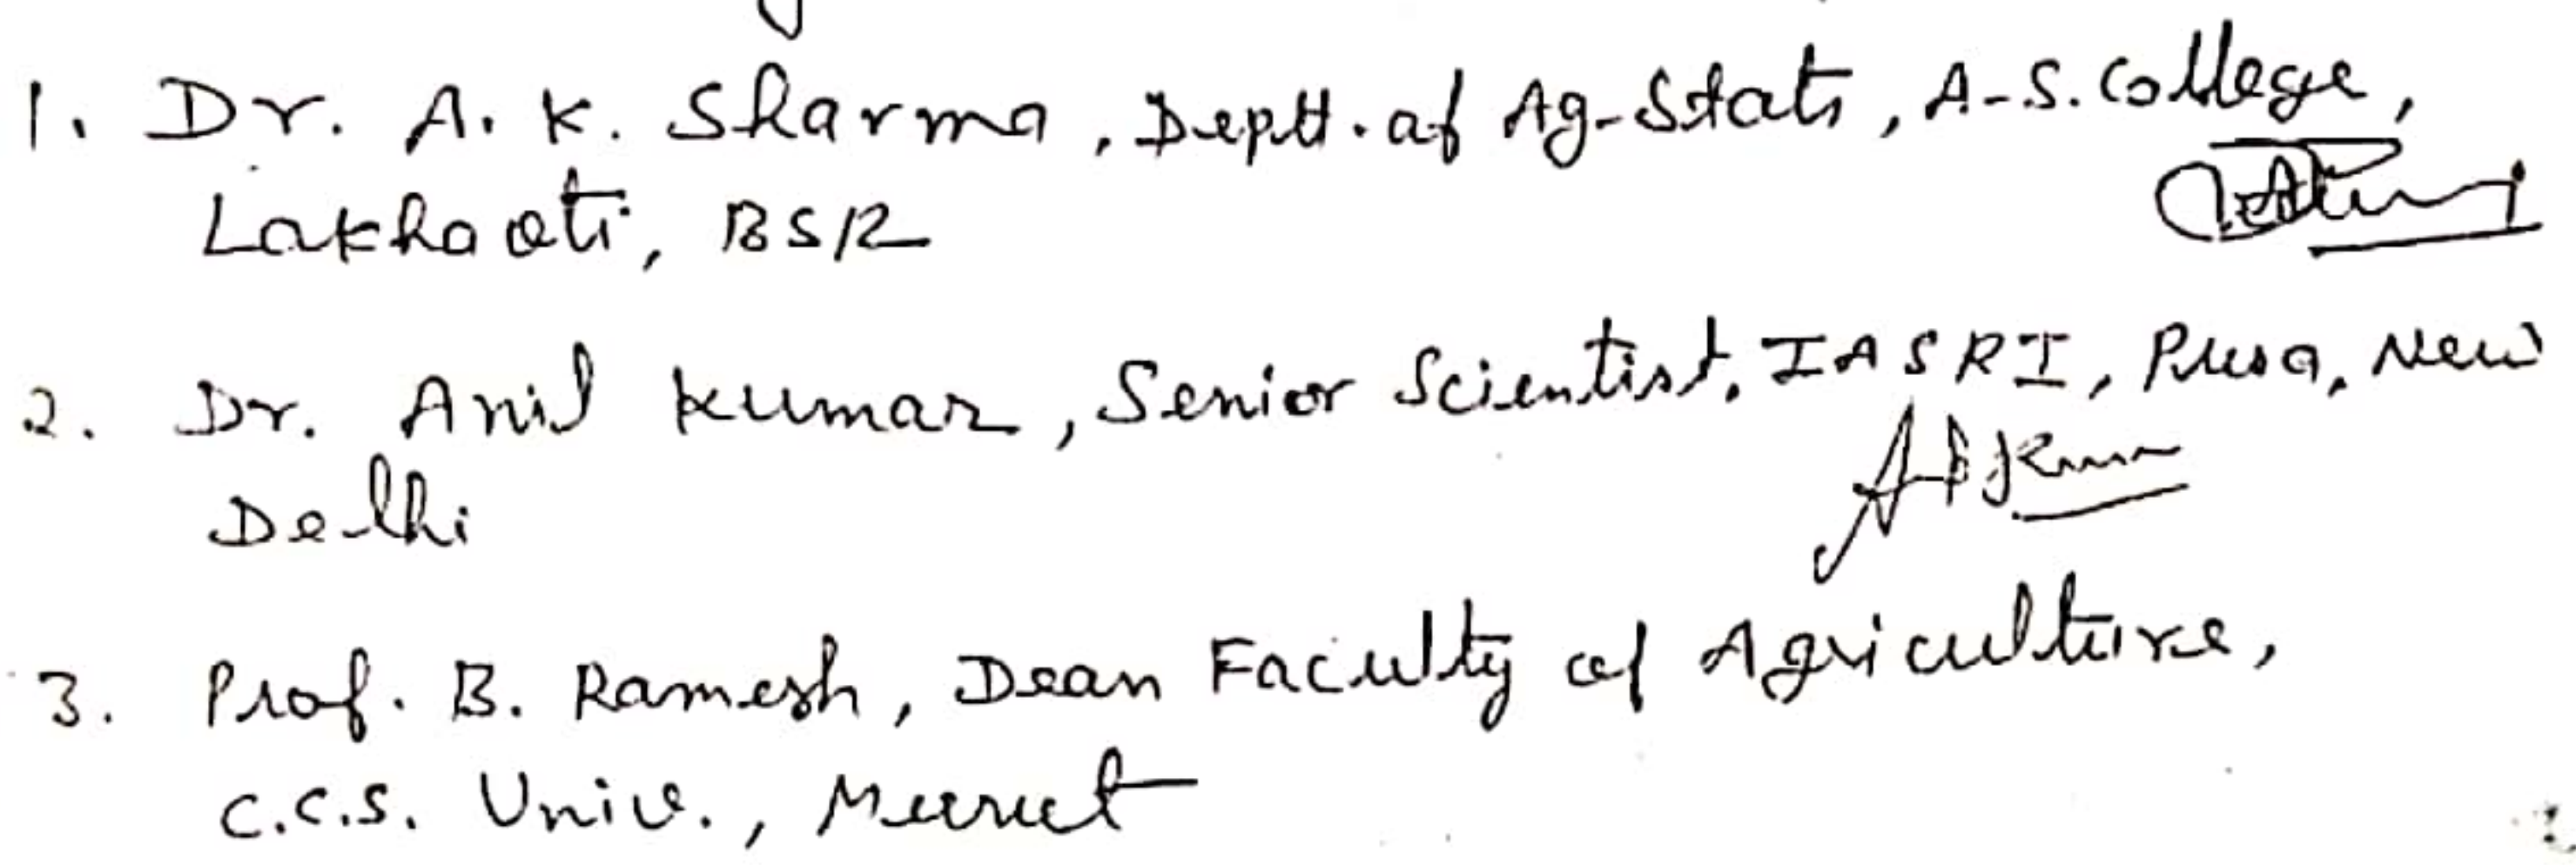 1. Dr. A. K. Sharma, Deptt. of Ag-Stats, A-S. College,
Lakhaoti, BSR
2. Dr. Anil Kumar, Senior Scientist, IASRI, Pusa, New
Delhi
3. Prof. B. Ramesh, Dean Faculty of Agriculture,
C.C.S. Univ., Meerut